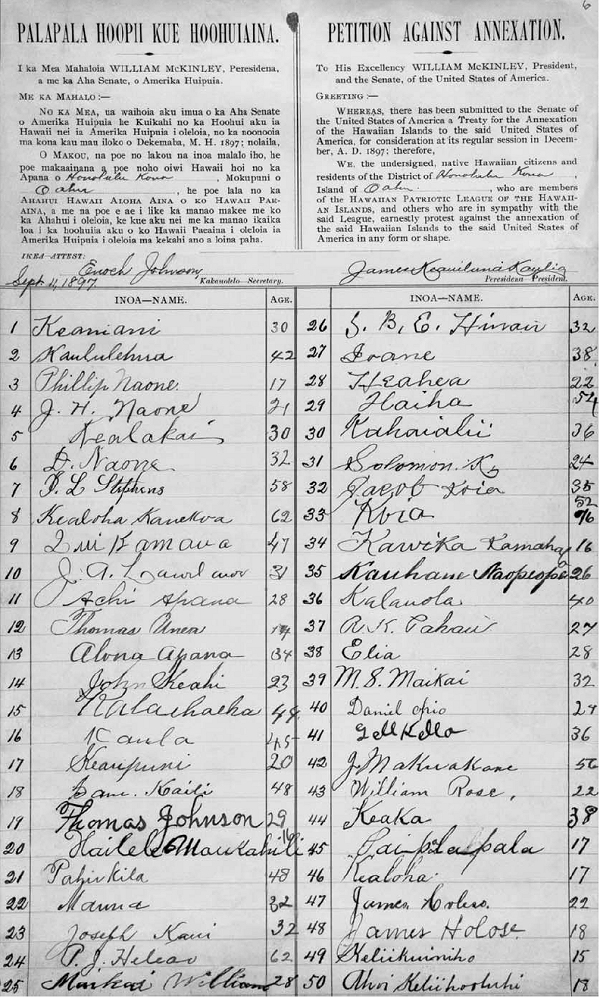 6
PALAPALA HOOPII KUE HOOHUIAINA.
I ka Mea Mahaloia WILLIAM McKINLEY, Peresidena,
a me ka Aha Senate, o Amerika Huipuia.
ME KA MAHALO:—
NO KA MEA, ua waihoia aku imua o ka Aha Senate
o Amerika Huipuia he Kuikahi no ka Hoohui aku ia
Hawaii nei ia Amerika Huipuia i oleloia, no ka noonooia
ma kona kau mau iloko o Dekemaba, M. H. 1897; nolaila,
O MAKOU, na poe no lakou na inoa malalo iho, he
poe makaainana a poe noho oiwi Hawaii hoi no ka
Apana o Honolulu Kona, Mokupuni o
Oahu, he poe lala no ka
AHAHUI HAWAII ALOHA AINA O KO HAWAII PAE-
AINA, a me na poe e ae i like ka manao makee me ko
ka Ahahui i oleloia, ke kue aku nei me ka manao ikaika
loa i ka hoohuiia aku o ko Hawaii Paeaina i oleloia ia
Amerika Huipuia i oleloia ma kekahi ano a loina paha.
PETITION AGAINST ANNEXATION.
To His Excellency WILLIAM McKINLEY, President,
and the Senate, of the United States of America.
GREETING:—
WHEREAS, there has been submitted to the Senate of
the United States of America a Treaty for the Annexation
of the Hawaiian Islands to the said United States of
America, for consideration at its regular session in Decem-
ber, A. D. 1897; therefore,
WE, the undersigned, native Hawaiian citizens and
residents of the District of Honolulu Kona,
Island of Oahu, who are members
of the HAWAIIAN PATRIOTIC LEAGUE OF THE HAWAII-
AN ISLANDS, and others who are in sympathy with the
said League, earnestly protest against the annexation of
the said Hawaiian Islands to the said United States of
America in any form or shape.
IKEA—ATTEST:
Sept 11, 1897 Enoch Johnson
Kakauolelo—Secretary.
James Keauiluna Kaulia
Peresidena—President.
INOA—NAME. AGE.
1 Keaniani 30
2 Kaululehua 42
3 Phillip Naone 17
4 J. H. Naone 21
5 Kealakai 30
6 D. Naone 32
7 J. L Stephens 58
8 Kealoha Kanekoa 62
9 Lui Kamaua 47
10 J. A. 31
11 Achi Apana 28
12 Thomas
13 Alona Apana 34
14 John Keahi 23
15 Kalachaeha
16 Kaula 45
17 Keaupuni 20
18 Kaili 48
19 Thomas Johnson 29
20 Hailele Maukahili 16
21 Pahukila 48
22 Mauna 32
23 Joseph Kaui 32
24 P. J. Heleao 62
25 Maikai William 28
INOA—NAME. AGE.
26 S. B. E. 32
27 Ioane 38
28 Heahea 22
29 Haiha 54
30 Kahawalii 36
31 Solomon. K 24
32 Jacob Koia 35
33 Koia 52 76
34 Kawika Kamaha 16
35 Kauhane Naopeope 26
36 Kalauola 40
37 R. K. Pahau 27
38 Elia 28
39 M. S. Maikai 32
40 Daniel opio 27
41 36
42 J. Makuakane 56
43 William Rose, 22
44 Keaka 38
45 Paipalapala 17
46 Kealoha 17
47 James 22
48 James Holose 18
49 Keliikuiniho 15
50 Ahoi Keliihooluhi 18